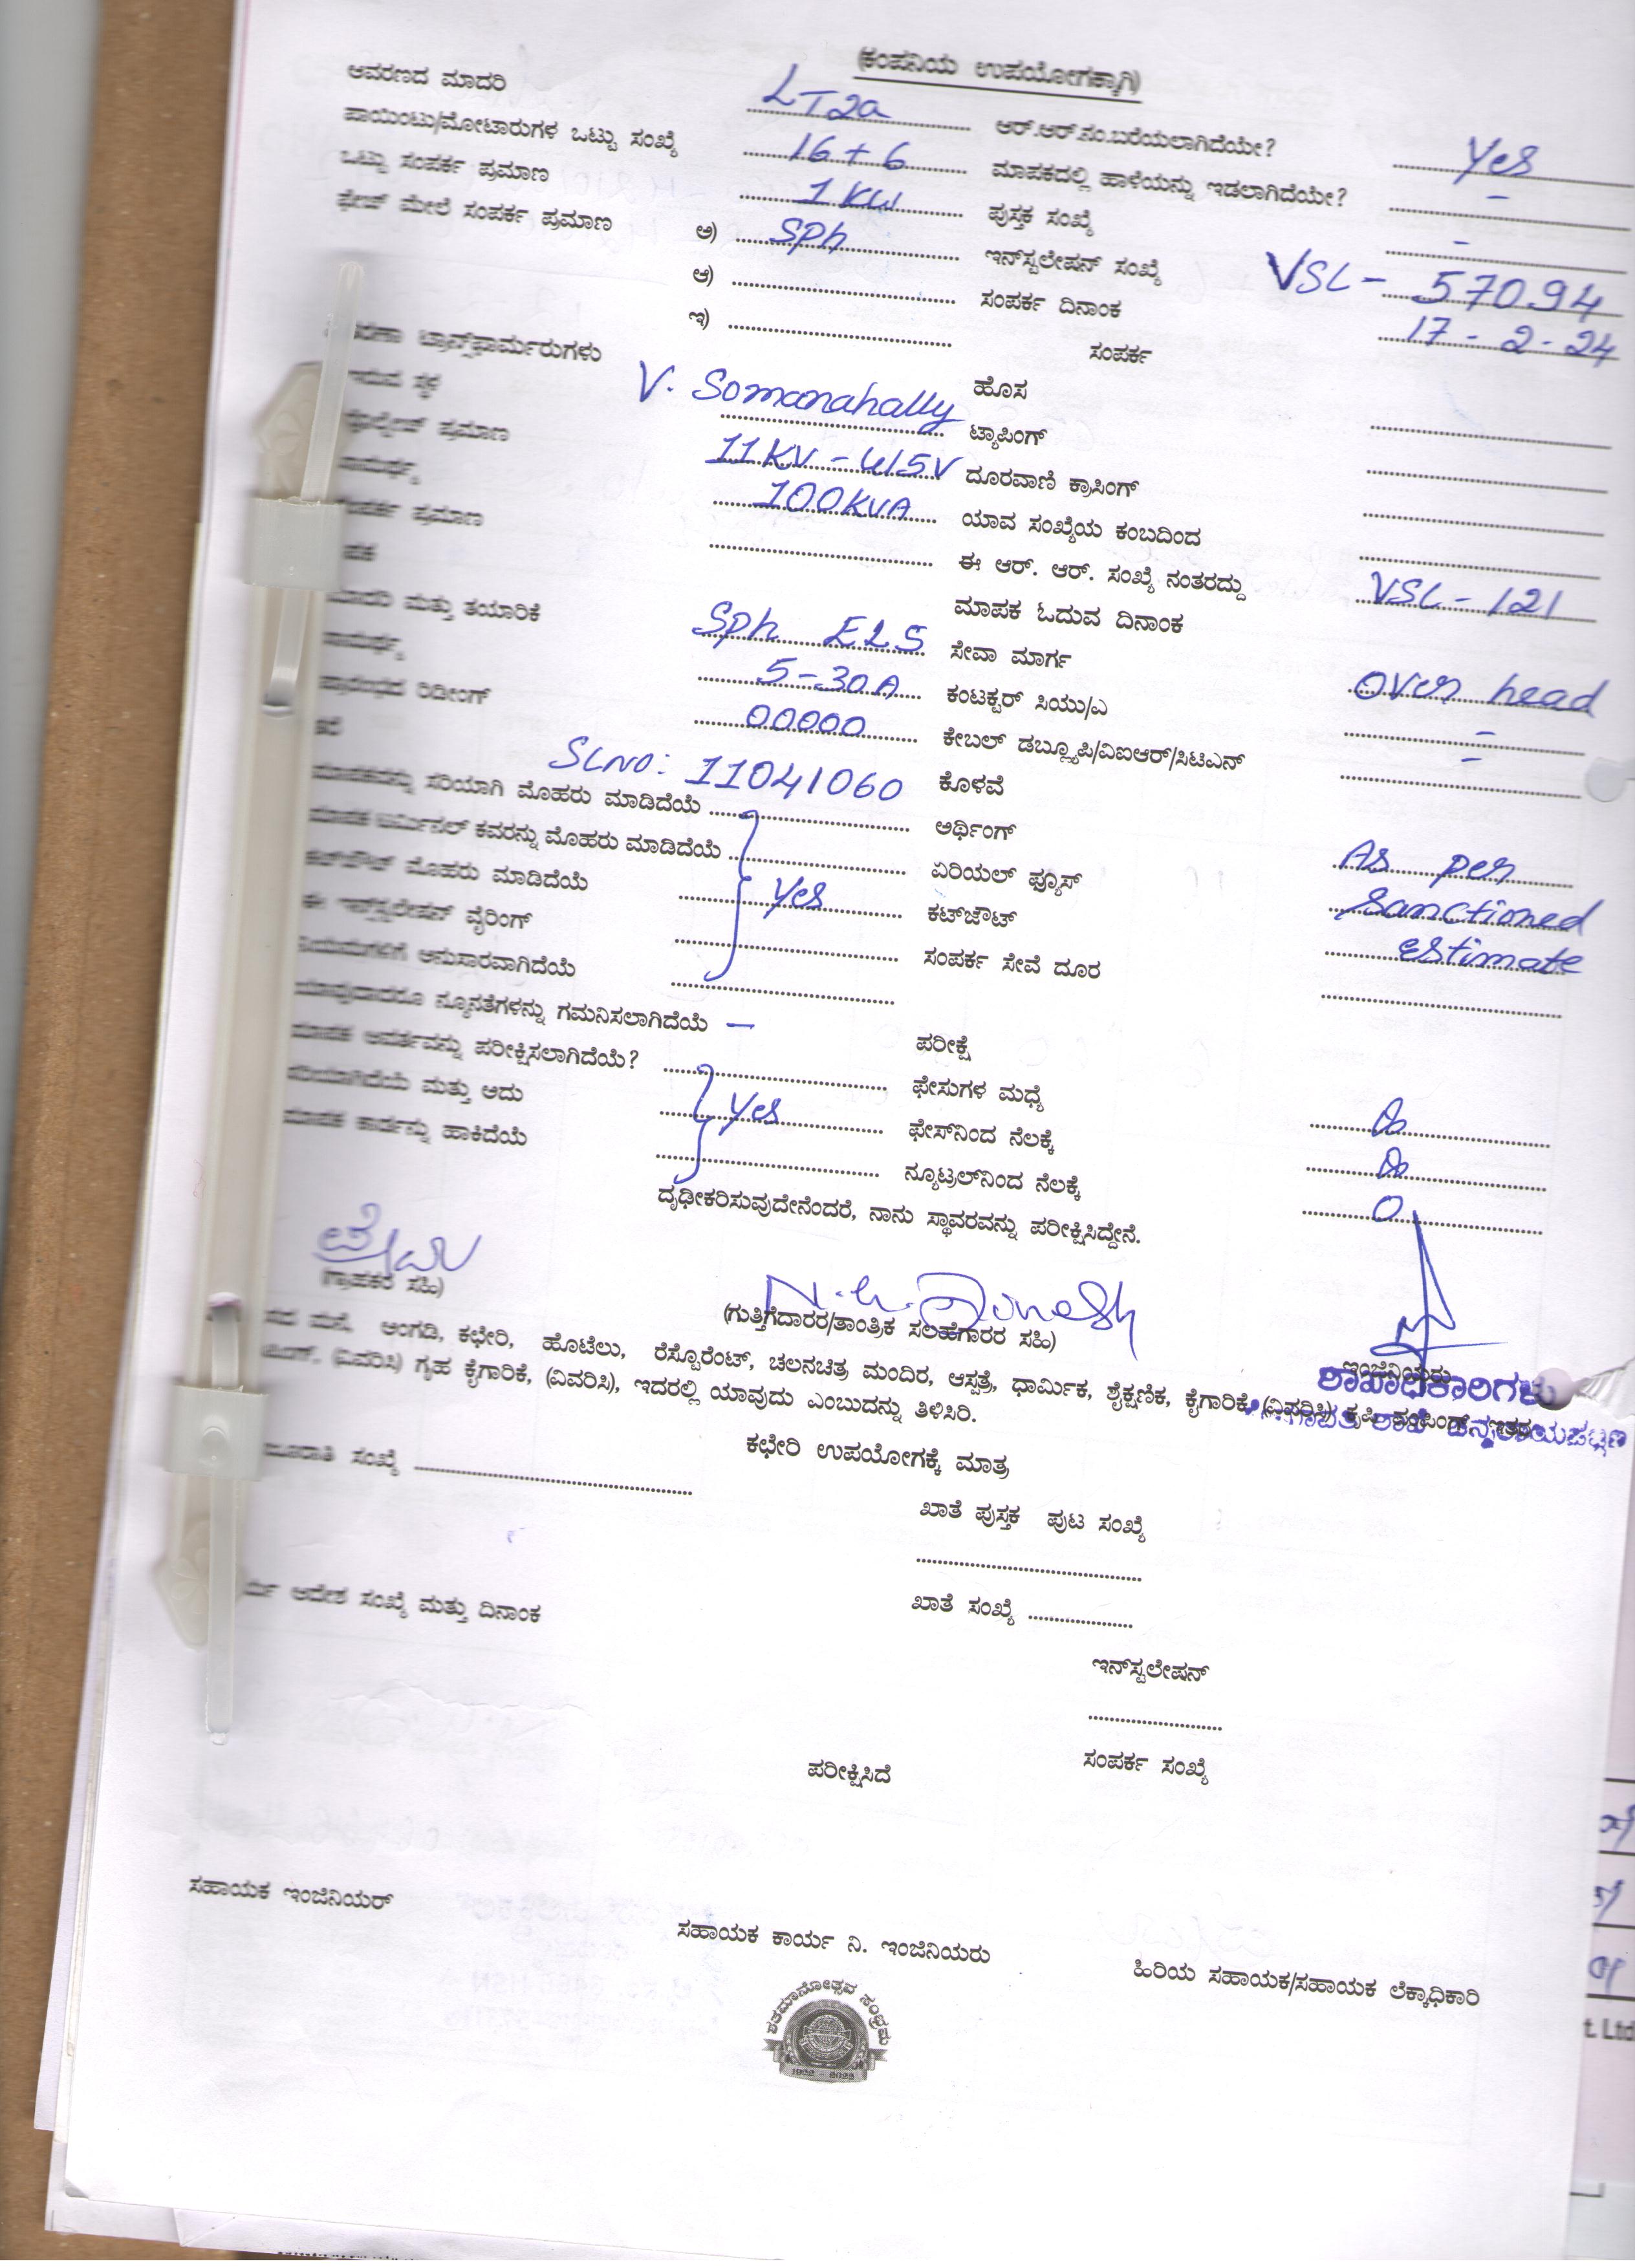 (ಕಂಪನಿಯ ಉಪಯೋಗಕ್ಕಾಗಿ)
ಆವರಣದ ಮಾದರಿ LT2a ಆರ್.ಆರ್.ನಂ.ಬರೆಯಲಾಗಿದೆಯೇ? Yes
ಪಾಯಿಂಟು/ಮೋಟಾರುಗಳ ಒಟ್ಟು ಸಂಖ್ಯೆ 16 + 6 ಮಾಪಕದಲ್ಲಿ ಹಾಳೆಯನ್ನು ಇಡಲಾಗಿದೆಯೇ? -
ಒಟ್ಟು ಸಂಪರ್ಕ ಪ್ರಮಾಣ 1 KW ಪುಸ್ತಕ ಸಂಖ್ಯೆ -
ಫೇಜ್ ಮೇಲೆ ಸಂಪರ್ಕ ಪ್ರಮಾಣ ಅ) SPh ಇನ್‌ಸ್ಟಲೇಷನ್ ಸಂಖ್ಯೆ VSL - 57094
ಆ) ಸಂಪರ್ಕ ದಿನಾಂಕ 17 - 2 - 24
ಇ) ಸಂಪರ್ಕ
ಟ್ರಾನ್ಸ್‌ಫಾರ್ಮರುಗಳು ಹೊಸ
ಸ್ಥಳ V. Somanahally ಟ್ಯಾಪಿಂಗ್
ಪ್ರಮಾಣ 11KV - 415V ದೂರವಾಣಿ ಕ್ರಾಸಿಂಗ್
100KVA ಯಾವ ಸಂಖ್ಯೆಯ ಕಂಬದಿಂದ
ಪ್ರಮಾಣ ಈ ಆರ್. ಆರ್. ಸಂಖ್ಯೆ ನಂತರದ್ದು VSL - 121
ಮಾಪಕ ಓದುವ ದಿನಾಂಕ
ಮತ್ತು ತಯಾರಿಕೆ Sph ELS ಸೇವಾ ಮಾರ್ಗ Over head
5 - 30A ಕಂಟಕ್ಟರ್ ಸಿಯು/ಎ -
ರಿಡೀಂಗ್ 00000 ಕೇಬಲ್ ಡಬ್ಲ್ಯೂಪಿ/ವಿಐಆರ್/ಸಿಟಿಎನ್ -
SLNO: 11041060 ಕೊಳವೆ
ಸರಿಯಾಗಿ ಮೊಹರು ಮಾಡಿದೆಯೆ ಅರ್ಥಿಂಗ್ As per
ಮಾಪಕ ಟರ್ಮಿನಲ್ ಕವರನ್ನು ಮೊಹರು ಮಾಡಿದೆಯೆ ಏರಿಯಲ್ ಫ್ಯೂಸ್ Sanctioned
ಮೊಹರು ಮಾಡಿದೆಯೆ Yes ಕಟ್‌ಔಟ್ estimate
ಈ ಇನ್‌ಸ್ಟಲೇಷನ್ ವೈರಿಂಗ್ ಸಂಪರ್ಕ ಸೇವೆ ದೂರ
ನಿಯಮಗಳಿಗೆ ಅನುಸಾರವಾಗಿದೆಯೆ
ಯಾವುದಾದರೂ ನ್ಯೂನತೆಗಳನ್ನು ಗಮನಿಸಲಾಗಿದೆಯೆ - ಪರೀಕ್ಷೆ
ಮಾಪಕ ಆವರ್ತವನ್ನು ಪರೀಕ್ಷಿಸಲಾಗಿದೆಯೆ? ಫೇಸುಗಳ ಮಧ್ಯೆ
ಸರಿಯಾಗಿದೆಯೆ ಮತ್ತು ಅದು Yes ಫೇಸ್‌ನಿಂದ ನೆಲಕ್ಕೆ
ಮಾಪಕ ಕಾರ್ಡನ್ನು ಹಾಕಿದೆಯೆ ನ್ಯೂಟ್ರಲ್‌ನಿಂದ ನೆಲಕ್ಕೆ 0
ದೃಢೀಕರಿಸುವುದೇನೆಂದರೆ, ನಾನು ಸ್ಥಾವರವನ್ನು ಪರೀಕ್ಷಿಸಿದ್ದೇನೆ.
(ಗ್ರಾಹಕರ ಸಹಿ)
(ಗುತ್ತಿಗೆದಾರರ/ತಾಂತ್ರಿಕ ಸಲಹೆಗಾರರ ಸಹಿ)
ಇಂಜಿನಿಯರು
ಶಾಖಾಧಿಕಾರಿಗಳು
ಮನೆ, ಅಂಗಡಿ, ಕಛೇರಿ, ಹೊಟೆಲು, ರೆಸ್ಟೊರೆಂಟ್, ಚಲನಚಿತ್ರ ಮಂದಿರ, ಆಸ್ಪತ್ರೆ, ಧಾರ್ಮಿಕ, ಶೈಕ್ಷಣಿಕ, ಕೈಗಾರಿಕೆ, (ವಿವರಿಸಿ) ಕೃಷಿ ಪಂಪಿಂಗ್, ಇತರ
(ವಿವರಿಸಿ) ಗೃಹ ಕೈಗಾರಿಕೆ, (ವಿವರಿಸಿ), ಇದರಲ್ಲಿ ಯಾವುದು ಎಂಬುದನ್ನು ತಿಳಿಸಿರಿ.
ಶಾಖೆ ಚನ್ನರಾಯಪಟ್ಟಣ
ಕಛೇರಿ ಉಪಯೋಗಕ್ಕೆ ಮಾತ್ರ
ಸಂಖ್ಯೆ
ಖಾತೆ ಪುಸ್ತಕ ಪುಟ ಸಂಖ್ಯೆ
ಆದೇಶ ಸಂಖ್ಯೆ ಮತ್ತು ದಿನಾಂಕ ಖಾತೆ ಸಂಖ್ಯೆ
ಇನ್‌ಸ್ಟಲೇಷನ್
ಪರೀಕ್ಷಿಸಿದೆ ಸಂಪರ್ಕ ಸಂಖ್ಯೆ
ಸಹಾಯಕ ಇಂಜಿನಿಯರ್
ಸಹಾಯಕ ಕಾರ್ಯ ನಿ. ಇಂಜಿನಿಯರು
ಹಿರಿಯ ಸಹಾಯಕ/ಸಹಾಯಕ ಲೆಕ್ಕಾಧಿಕಾರಿ
t. Ltd
ಶತಮಾನೋತ್ಸವ ಸಂಭ್ರಮ
1922 - 2022